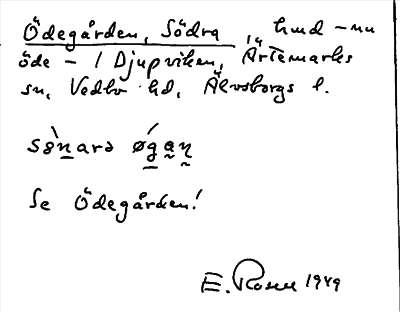 Ödegården, Södra, hmd – nu
öde – i Djupviken, Ärtemarks
sn, Vedbo hd, Älvsborgs l.
sø̀narə ǿgan
Se Ödegården!
E. Rosell 1949